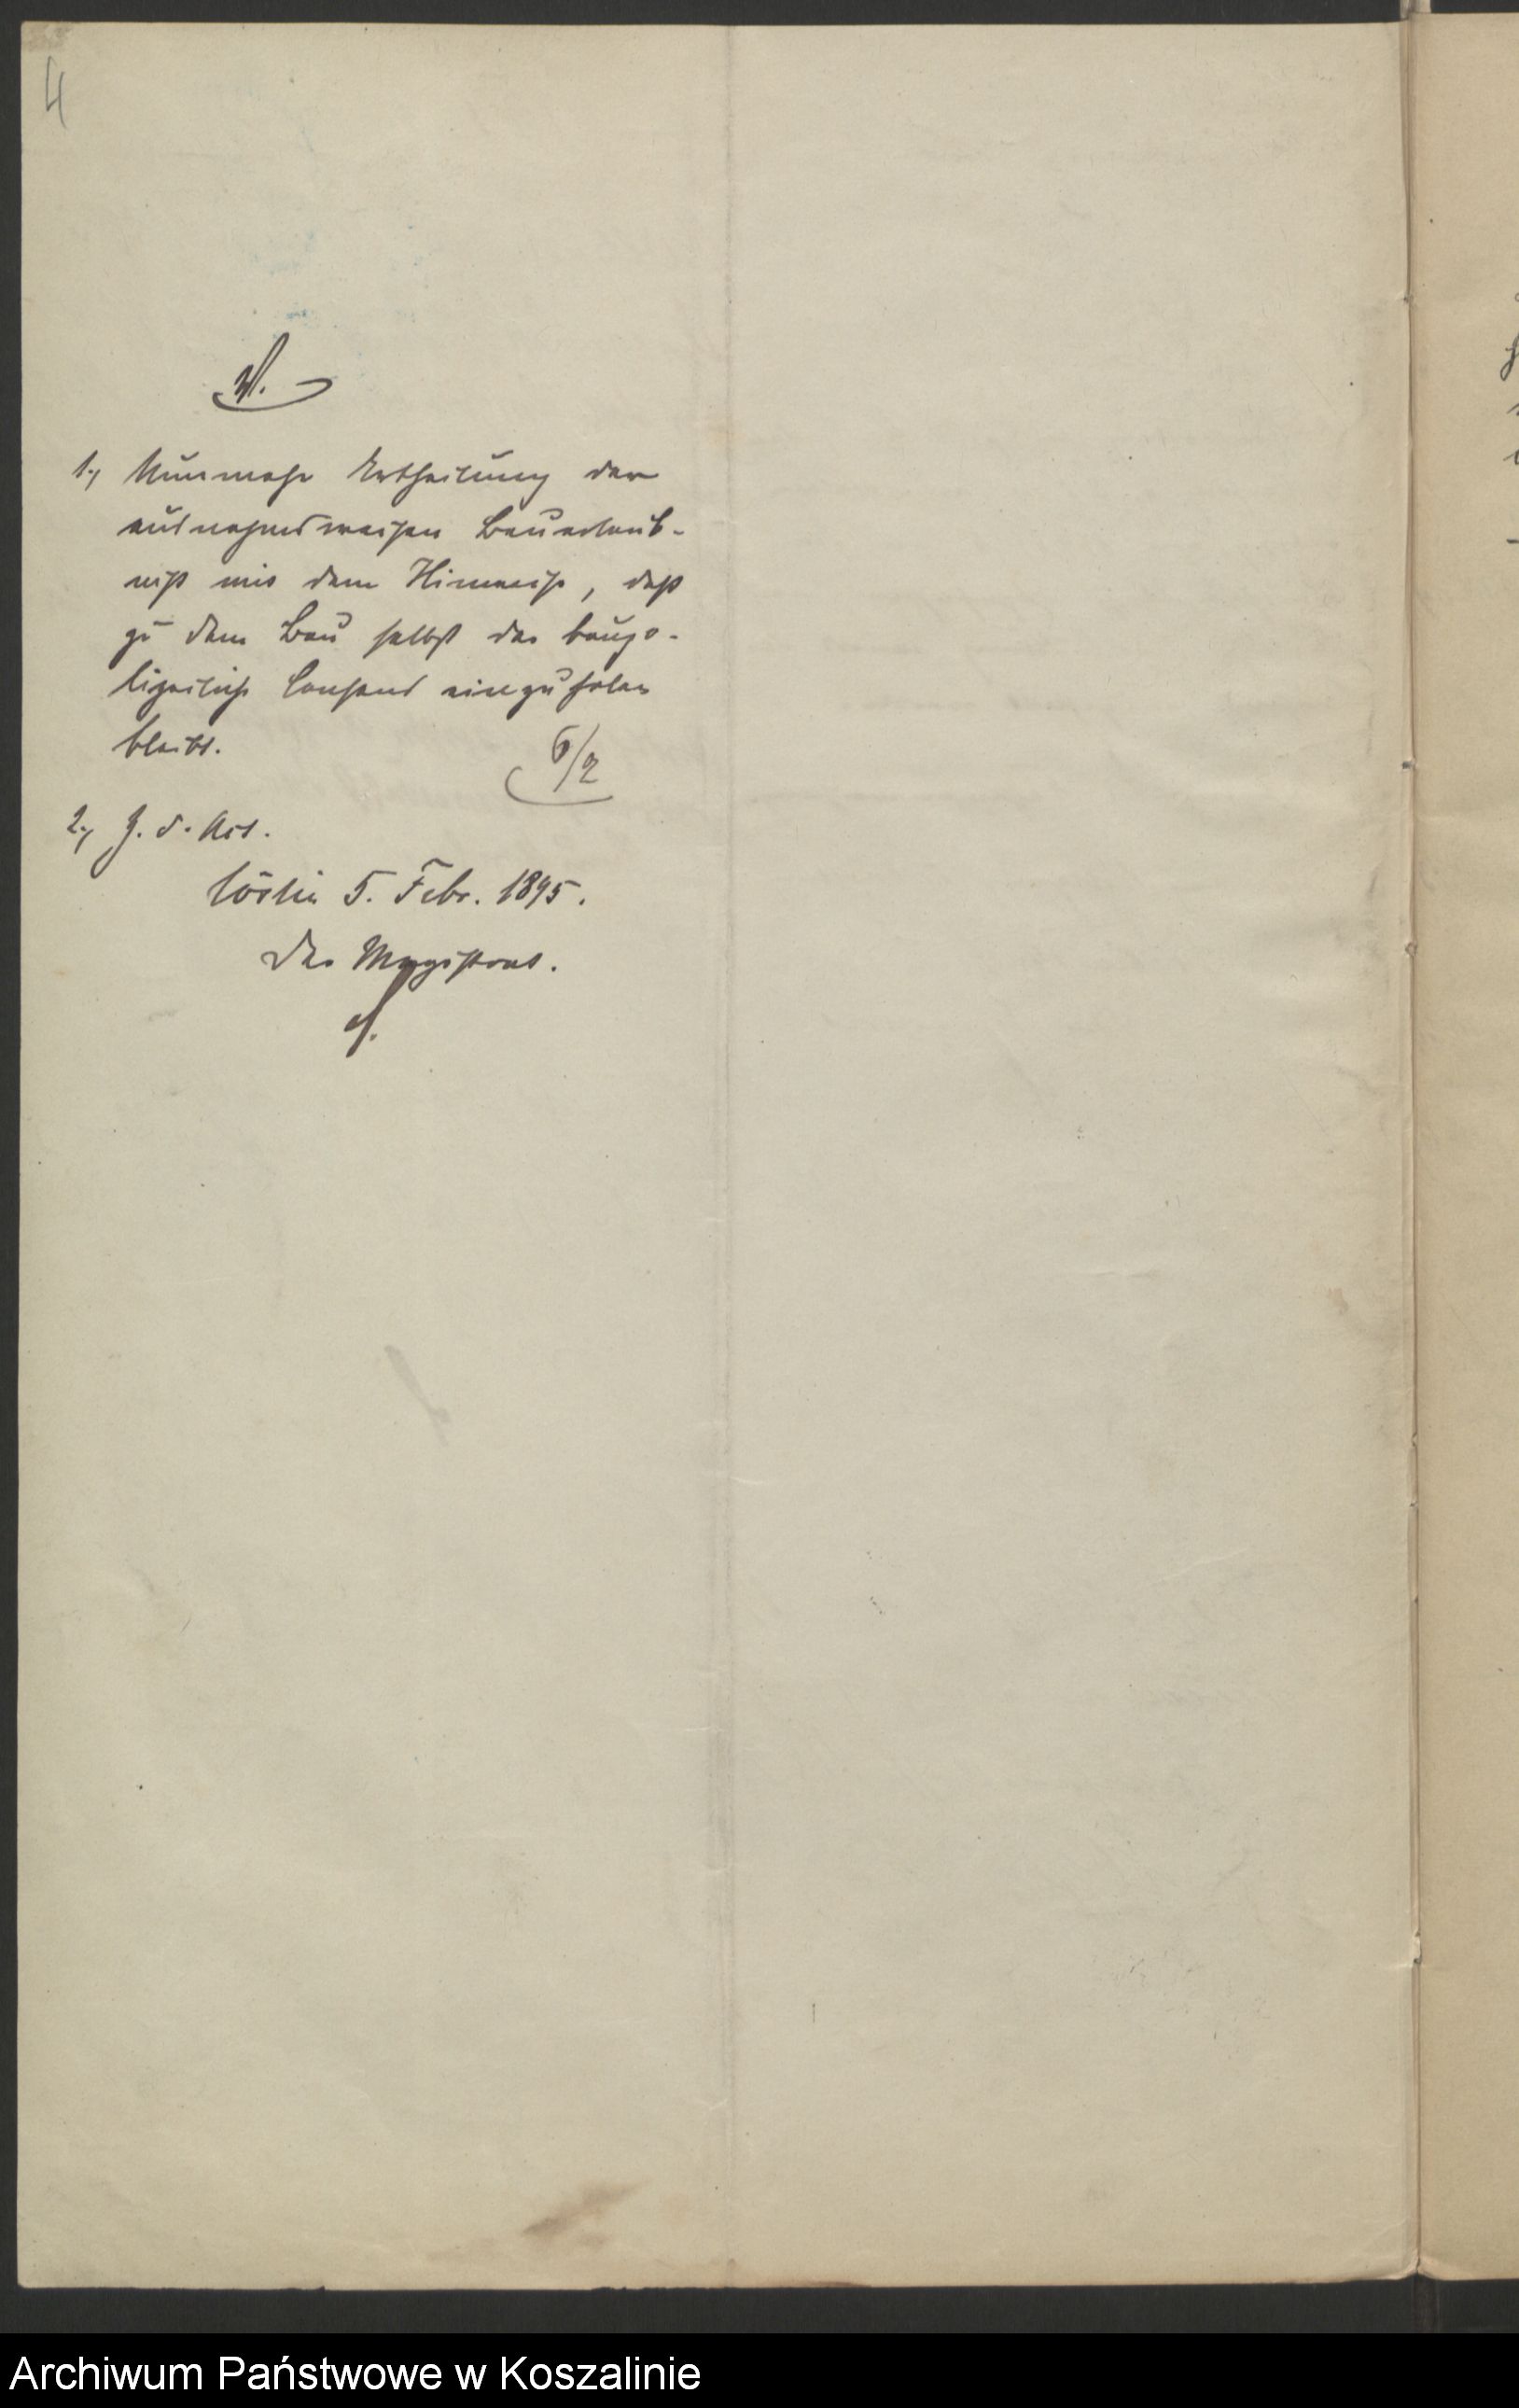 4
V.
1., Nunmehr Ertheilung der
ausnahmsweisen Bauerlaub-
niß mit dem Hinweise, daß
zu dem Bau selbst der baupo-
lizeiliche Consens einzuholen
bleibt.
6/2
2., Z. d. Act.
Cöslin 5. Febr. 1895.
Der Magistrat.
Archiwum Państwowe w Koszalinie